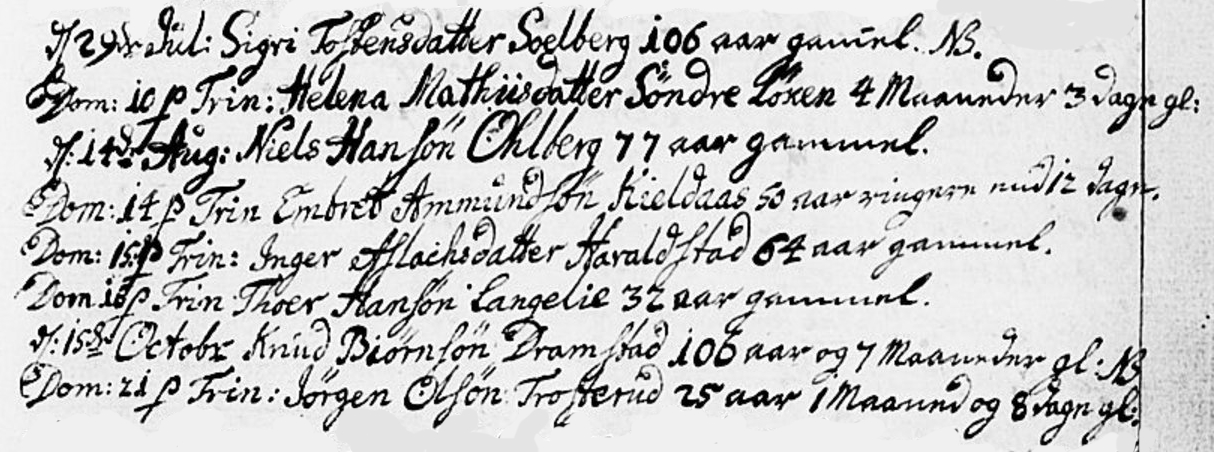 d: 29de Jul: Sigri Tostensdatter Soelberg 106 aar gamel. NB.
Dom: 10 p Trin: Helena Mathiisdatter Söndre Löken 4 Maaneder 3 dage gl:
d: 14de Aug: Niels Hansön Ohlberg 77 aar gammel.
Dom: 14 p Trin Embret Ammundsön Kieldaas 50 aar ringere end 12 dage.
Dom: 15 p Trin: Inger Aslachsdatter Haraldstad 64 aar gammel.
Dom 18 p Trin Thoer Hansön Langelie 32 aar gammel.
d: 15de Octobr Knud Biörnsön Dramstad 106 aar og 7 Maaneder gl: NB
Dom: 21 p Trin: Jörgen Olsön Trosterud 25 aar 1 Maaned og 8 dage gl: